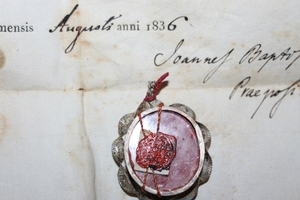 mensis Augusti anni 1836
Joannes Baptis
Praeposi